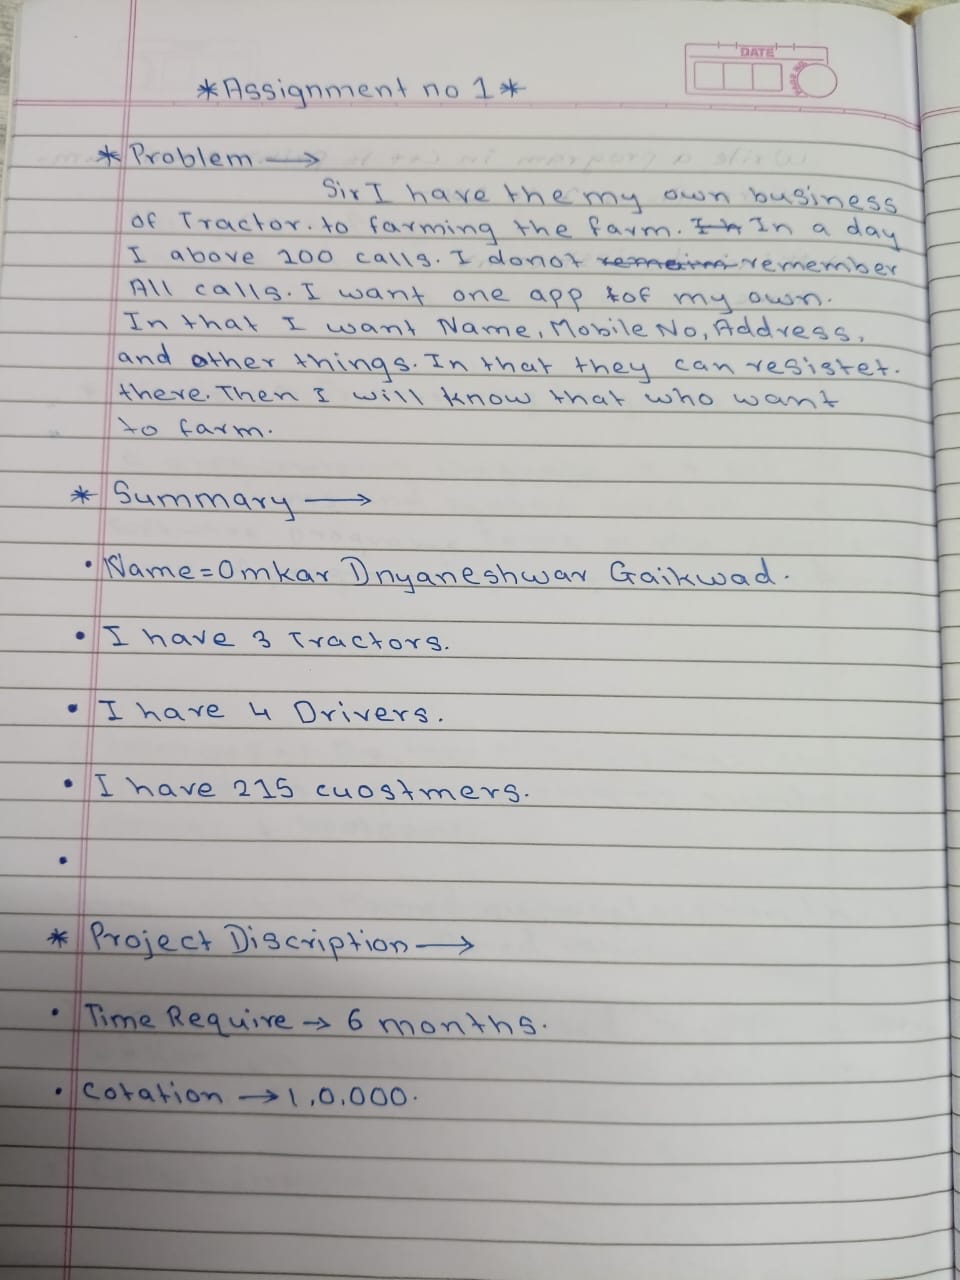 DATE
PAGE NO.
*Assignment no 1*
* Problem →
Sir I have the my own business
of Tractor. to farming the farm. In In a day
I above 200 calls. I donot remember
All calls. I want one app of my own.
In that I want Name, Mobile No, Address,
and other things. In that they can resister.
there. Then I will know that who want
to farm.
* Summary →
• Name=Omkar Dnyaneshwar Gaikwad.
• I have 3 Tractors.
• I have 4 Drivers.
• I have 215 cuostmers.
•
* Project Discription →
• Time Require → 6 months.
• Cotation → 1,0,000.